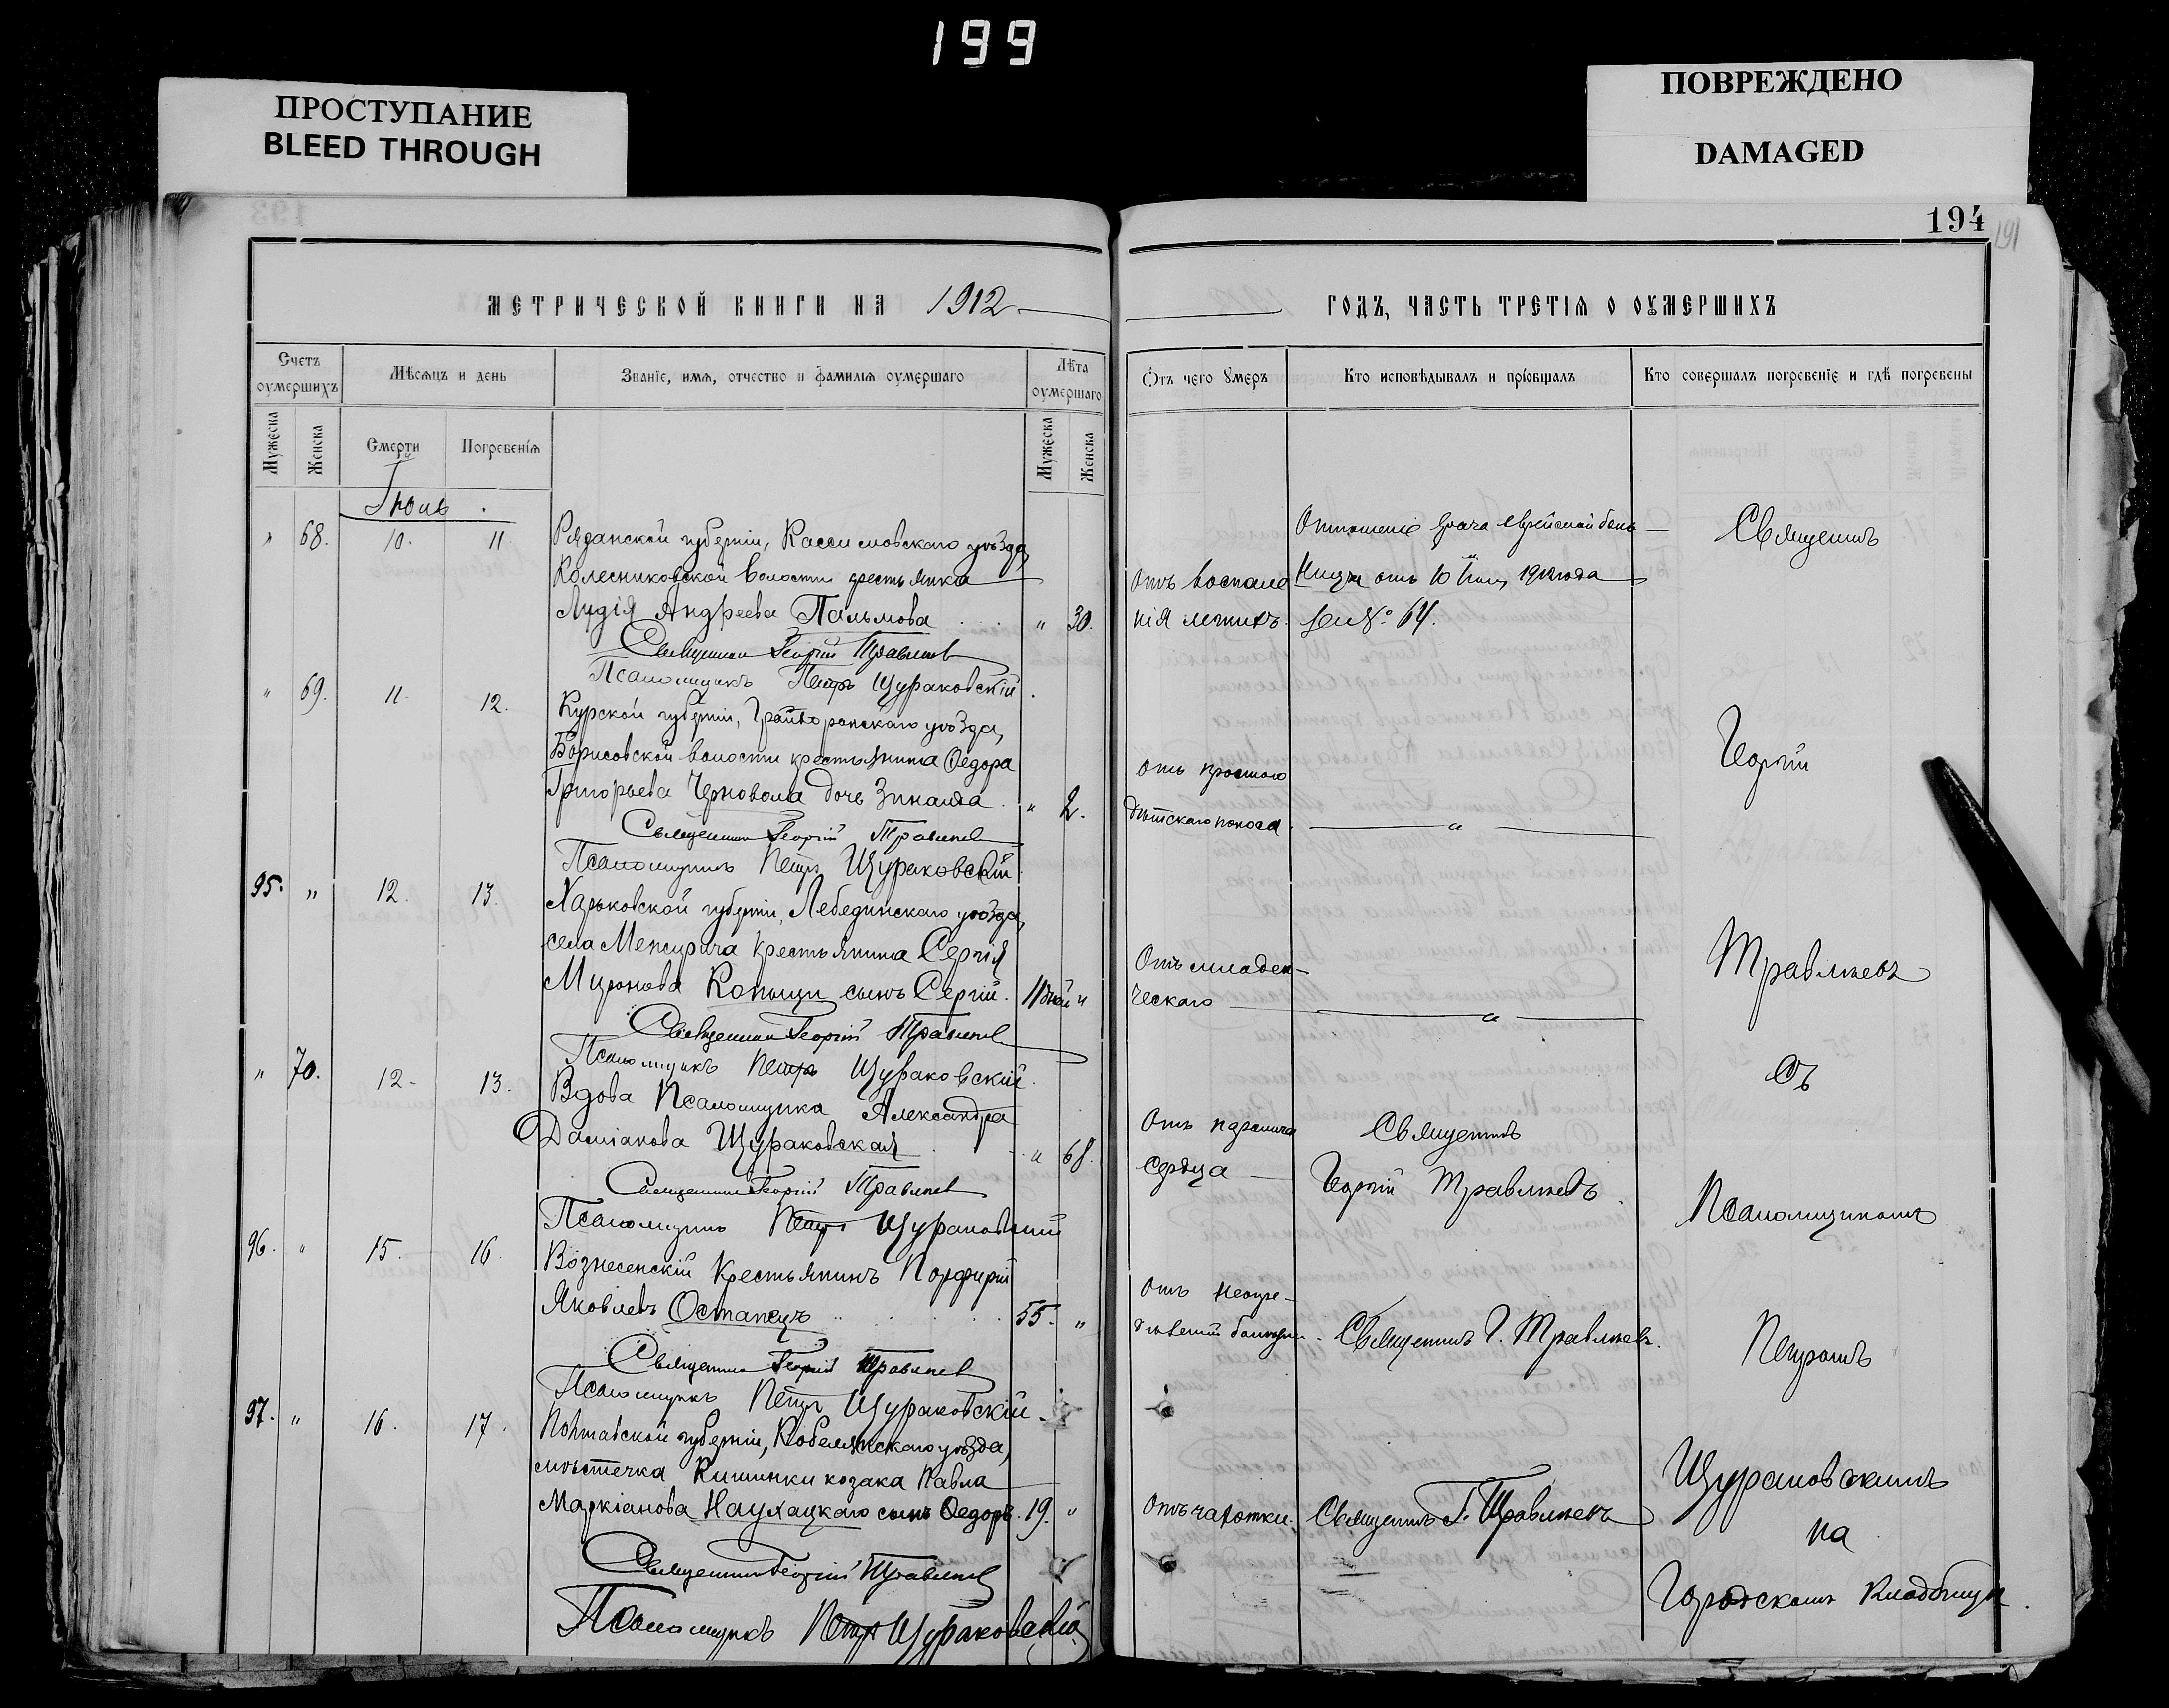 199
ПРОСТУПАНИЕ
BLEED THROUGH
ПОВРЕЖДЕНО
DAMAGED
194
191
МЕТРИЧЕСКОЙ КНИГИ НА 1912
ГОДЪ, ЧАСТЬ ТРЕТІЯ О ОУМЕРШИХЪ
Счетъ оумершихъ
Мѣсяцъ и день
Званіе, имя, отчество и фамилія оумершаго
Лѣта оумершаго
Отъ чего умеръ
Кто исповѣдывалъ и пріобщалъ
Кто совершалъ погребеніе и гдѣ погребены
Мужеска
Женска
Смерти
Погребенія
Мужеска
Женска
" 68. 10. 11. Рязанской губерніи, Кассимовскаго уѣзда,
Колесниковской волости крестьянка
Лидія Андреева Пальмова " 30.
Отъ воспаленія легкихъ.
Отношеніе врача еврейской больницы отъ 10 1912 года за № 64.
Священникъ Георгій Травлневъ
Псаломщикъ Петръ Щураковскій
" 69. 11. 12. Курской губерніи, Грайворонскаго уѣзда,
Борисовской волости крестьянина Ѳедора
Григорьева Черновола дочь Зинаида " 2.
Отъ
дѣтскаго поноса. "
Священникъ Георгій
Псаломщикъ Петръ Щураковскій
95. " 12. 13. Харьковской губерніи, Лебединскаго уѣзда,
села Межирича крестьянина Сергія
Миронова сынъ Сергій. 11 дней "
Отъ младенческаго "
Священникъ Георгій
Псаломщикъ Петръ Щураковскій
" 70. 12. 13. Вдова Псаломщика Александра
Даміанова Щураковская " 68.
Отъ паралича сердца
Священникъ
Георгій
Священникъ Георгій
Псаломщикъ Петръ Щураковскій
96. " 15. 16. Вознесенскій крестьянинъ Порфирій
Яковлевъ Остапецъ 55. "
Отъ
Священникъ Г.
Священникъ Георгій
Псаломщикъ Петръ Щураковскій
97. " 16. 17. Полтавской губерніи, Кобелякскаго уѣзда,
мѣстечка Кишинки козака Павла
Маркіанова сынъ Ѳедоръ. 19. "
Отъ чахотки.
Священникъ Г.
Священникъ Георгій
Псаломщикъ Петръ Щураковскій
Священникъ
Георгій
Съ
Псаломщикомъ
Петромъ
Щураковскимъ
на
Городскомъ Кладбищѣ.